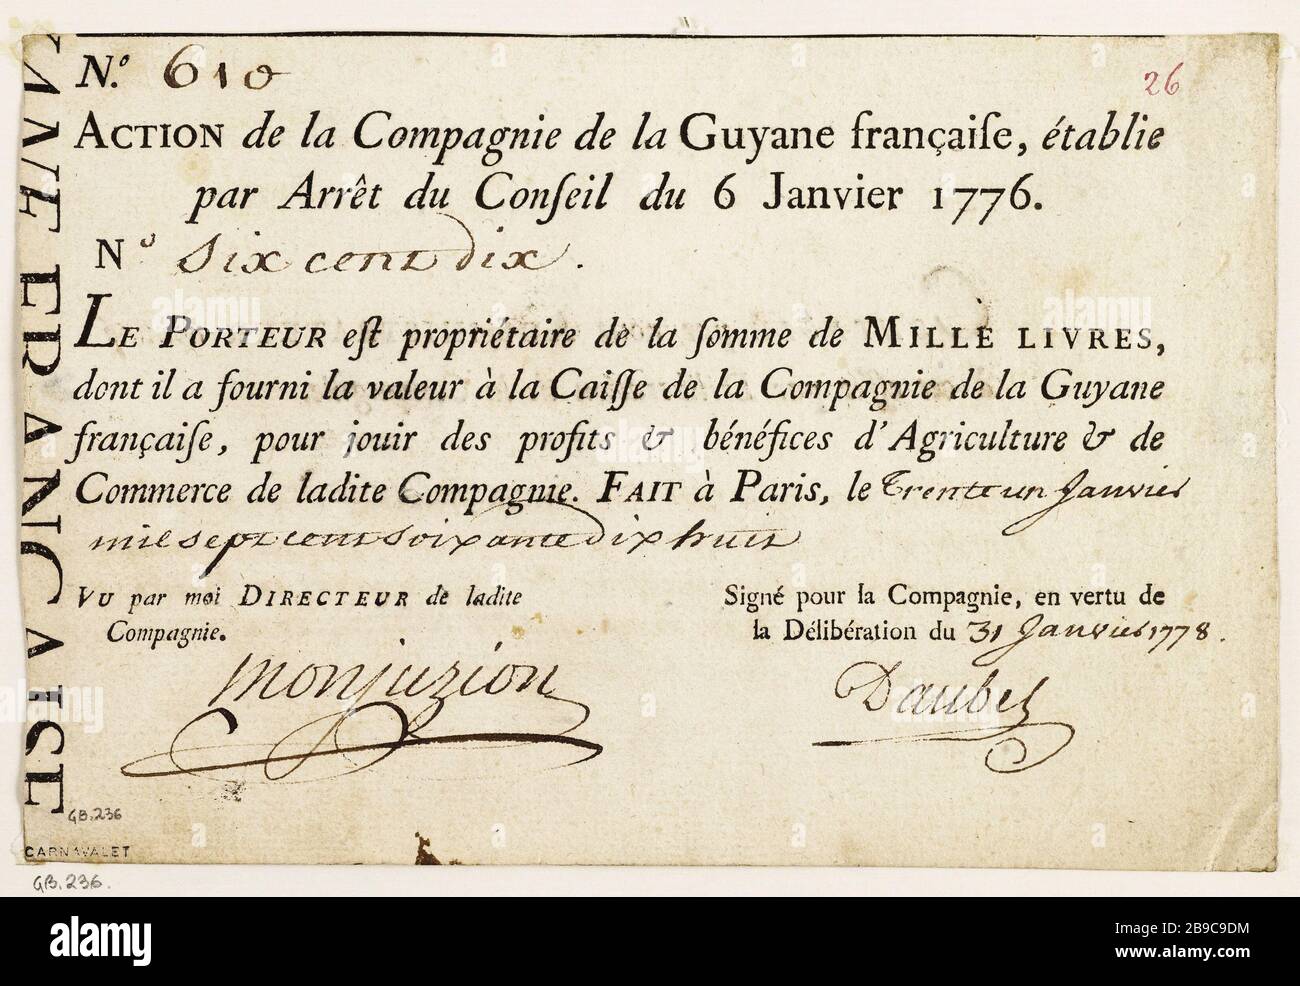 N.º 610
26
ACTION de la Compagnie de la Guyane françaiſe, établie
par Arrêt du Conſeil du 6 Janvier 1776.
Nº Six cent dix.
LE PORTEUR eſt propriétaire de la ſomme de MILLE LIVRES,
dont il a fourni la valeur à la Caiſſe de la Compagnie de la Guyane
françaiſe, pour jouir des profits & bénéfices d'Agriculture & de
Commerce de ladite Compagnie. FAIT à Paris, le Trente un Janvier
mil sept cent soixante dix huit
VU par moi DIRECTEUR de ladite
Compagnie.
Signé pour la Compagnie, en vertu de
la Délibération du 31 Janvier 1778.
Monjuzion
Daubel
FRANÇAISE
GB.236
CARNAVALET
GB.236.
alamy
Image ID: 2B9C9DM
www.alamy.com